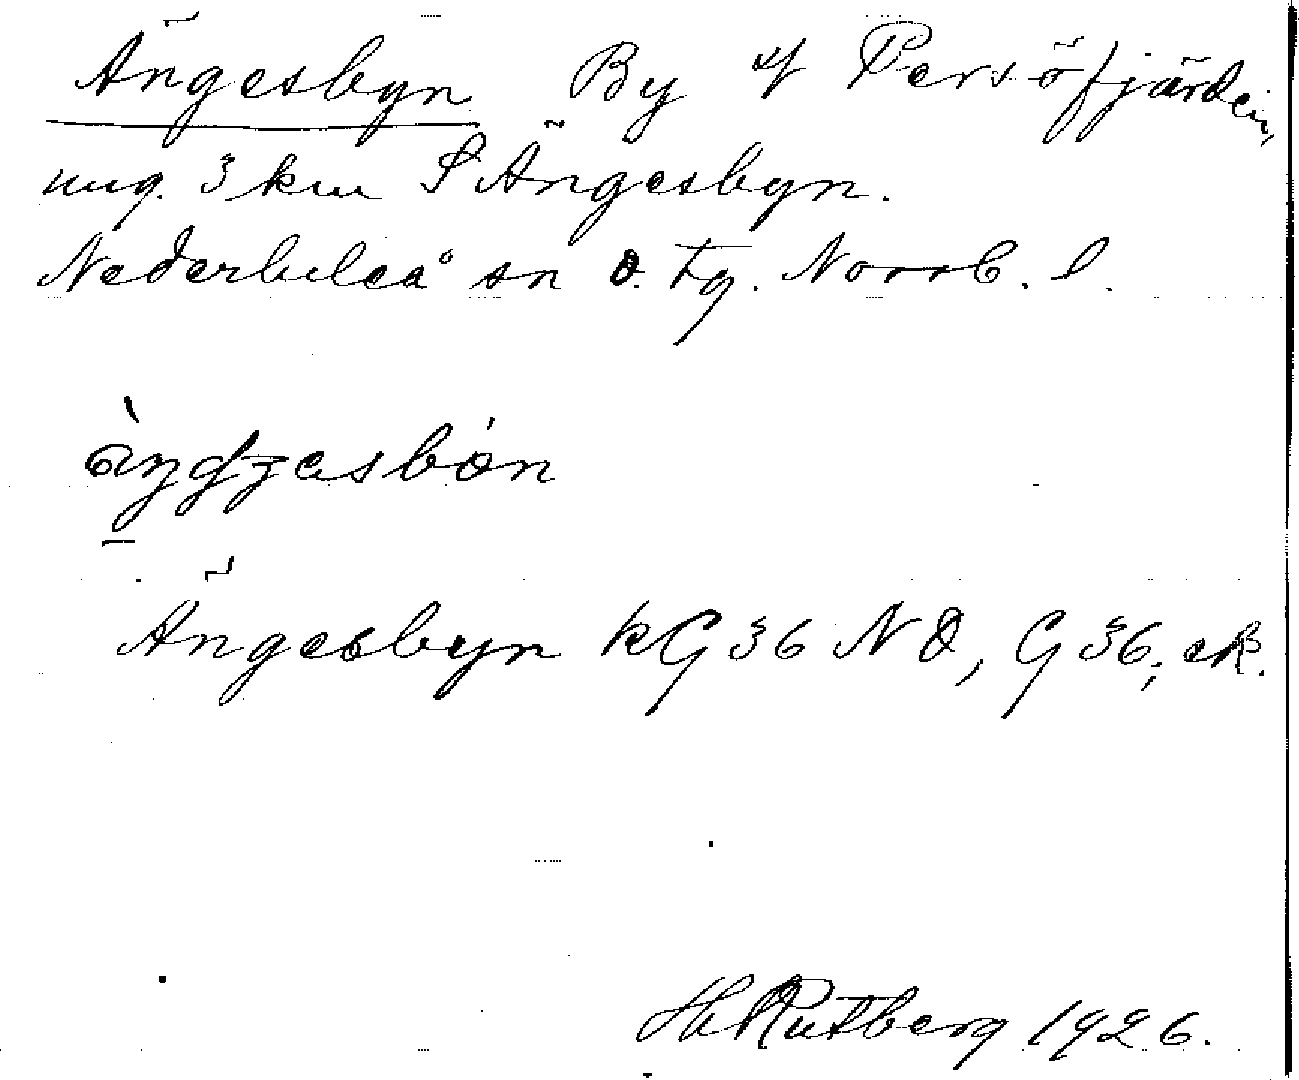 Ängesbyn By v/ Persöfjärden,
ung. 3 km S Ängesbyn.
Nederluleå sn ö. tg. Norrb. l.
Ängesbyn kG 36 NO, G 36, ek.
H Rutberg 1926.